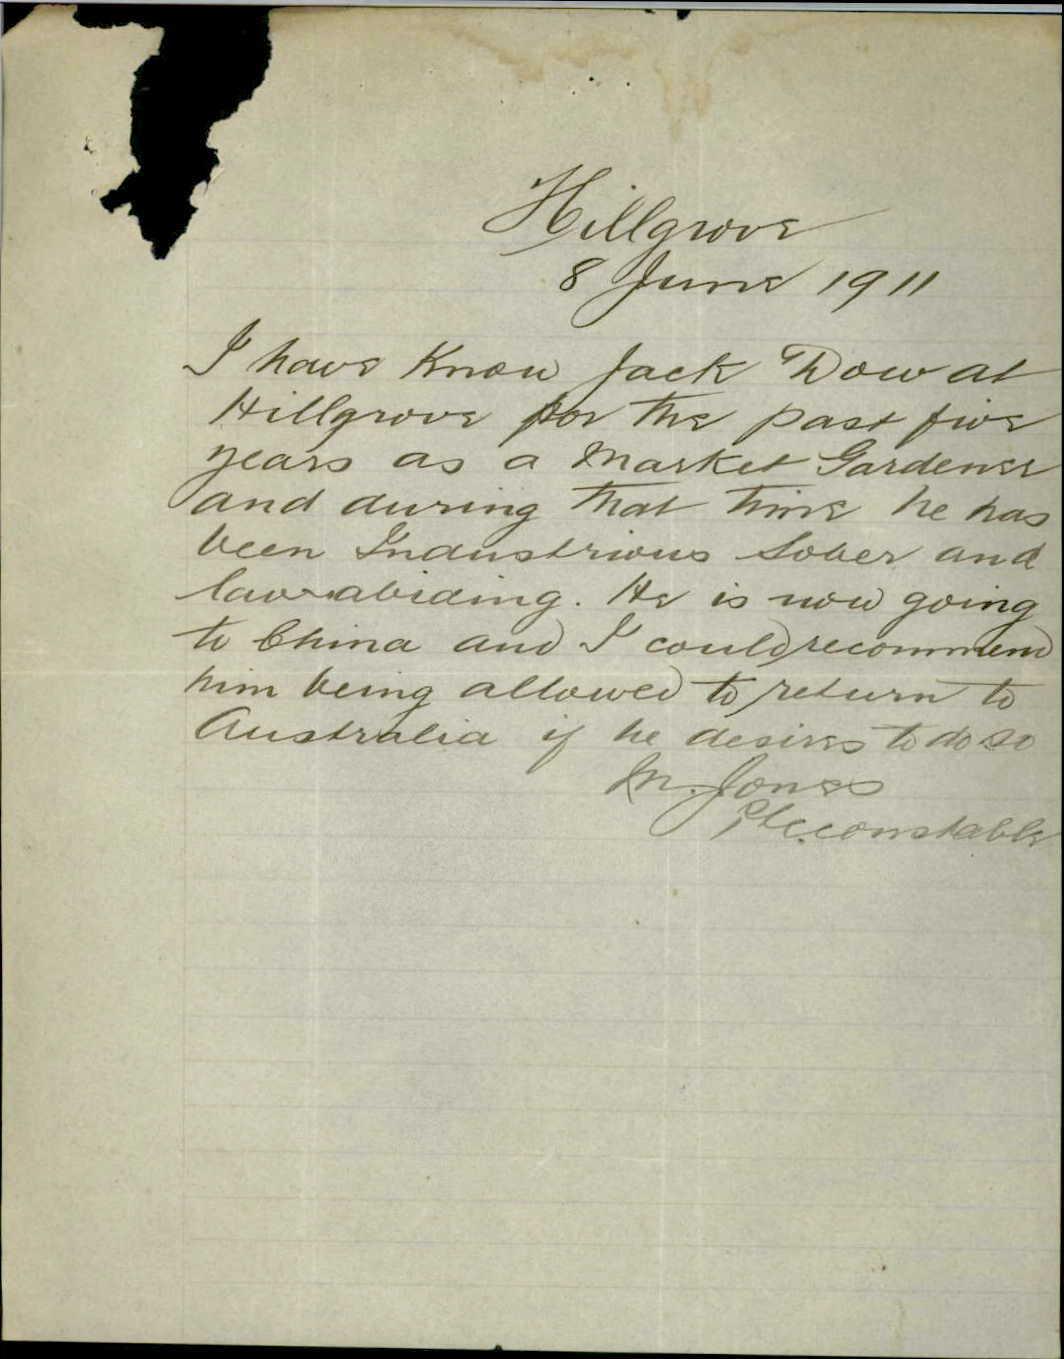 Hillgrove
8 June 1911
I have Know Jack Dow at
Hillgrove for the past five
years as a Market Gardener
and during that time he has
been Industrious Sober and
law abiding. He is now going
to China and I could recommend
him being allowed to return to
Australia if he desires to do so
M. Jones
constable